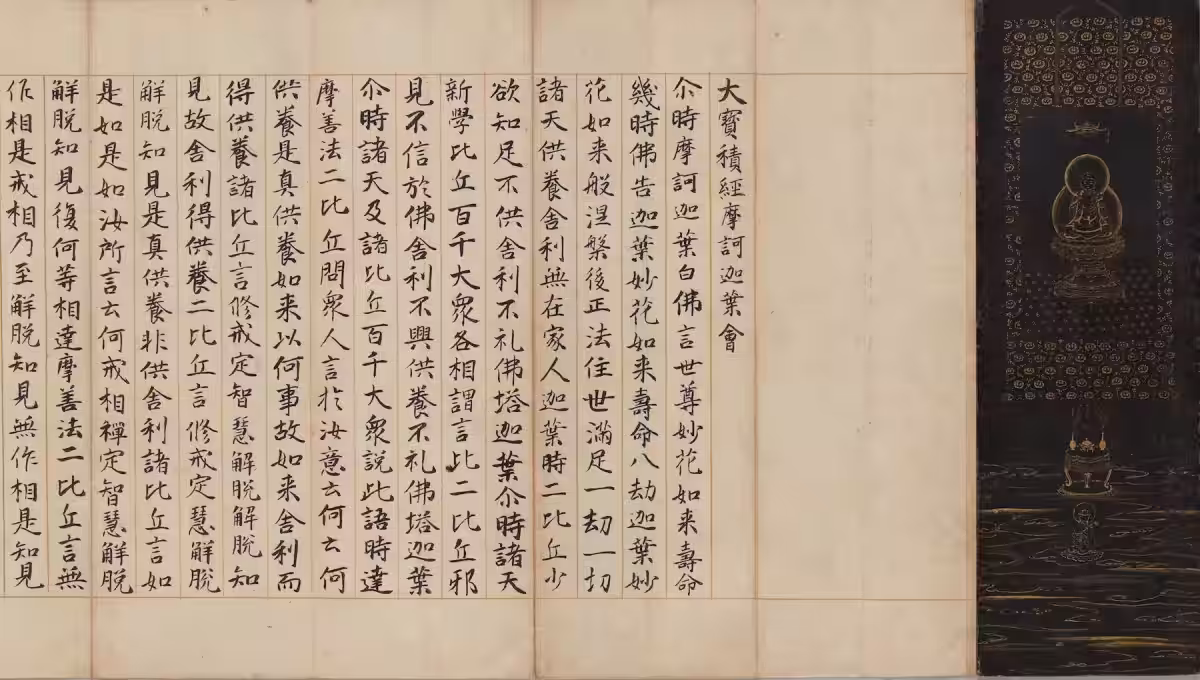 大寶積經摩訶迦葉會
尒時摩訶迦葉白佛言世尊妙花如来壽命
幾時佛告迦葉妙花如来壽命八劫迦葉妙
花如来般涅槃後正法住世滿足一劫一切
諸天供養舍利無在家人迦葉時二比丘少
欲知足不供舍利不礼佛塔迦葉尒時諸天
新學比丘百千大衆各相謂言此二比丘邪
見不信於佛舍利不興供養不礼佛塔迦葉
尒時諸天及諸比丘百千大衆説此語時達
摩善法二比丘問衆人言於汝意云何云何
供養是真供養如来以何事故如来舍利而
得供養諸比丘言修戒定智慧解脱解脱知
見故舍利得供養二比丘言修戒定慧解脱
解脱知見是真供養非供舍利諸比丘言如
是如是如汝所言云何戒相禪定智慧解脱
解脱知見復何等相達摩善法二比丘言無
作相是戒相乃至解脱知見無作相是知見